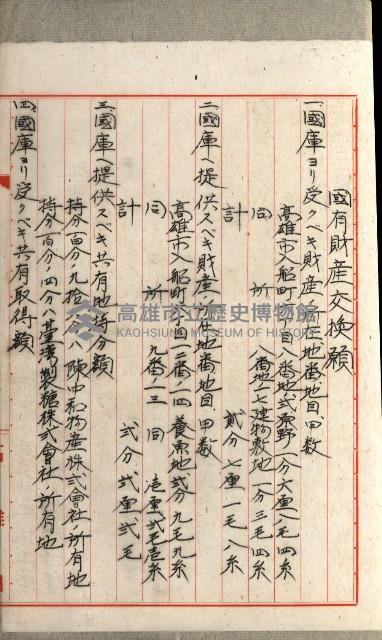 國有財産交換願
一、國庫ヨリ受クベキ財産ノ所在地番地目、甲数
高雄市入船町 目八番地ノ弐原野一分六厘八毛四糸
同 所 八番地ノ七建物敷地一分三毛四糸
計 貳分七厘一毛八糸
二、國庫ヘ提供スベキ財産ノ所在地番地目、甲数
高雄市入船町 四二番ノ一四養魚地弐分九毛九糸
同 所 九番ノ三 同 壱厘弐毛壱糸
計 弐分弐厘弐毛
三、國庫ヘ提供スベキ共有地持分額
持分百分ノ九拾六分ハ陳中和物産株式會社ノ所有地
持分百分ノ四分ハ臺灣製糖株式會社ノ所有地
四、國庫ヨリ受クベキ共有取得額
高雄市立歷史博物館
KAOHSIUNG MUSEUM OF HISTORY